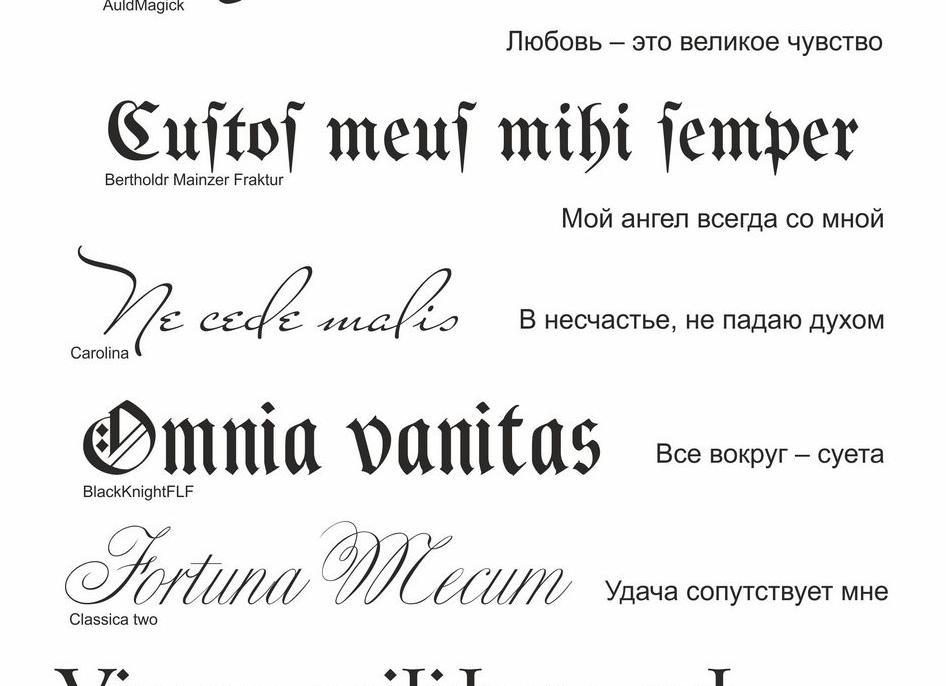 AuldMagick
Любовь – это великое чувство
Cuſtoſ meuſ mihi ſemper
Bertholdr Mainzer Fraktur
Мой ангел всегда со мной
Ne cede malis
В несчастье, не падаю духом
Carolina
Omnia vanitas
Все вокруг – суета
BlackKnightFLF
Fortuna Mecum
Удача сопутствует мне
Classica two